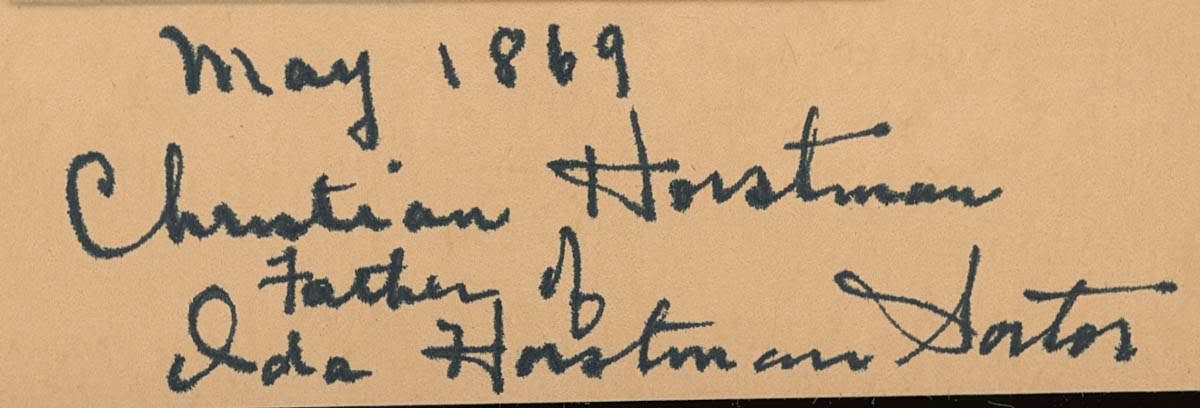 May 1869
Christian Horstman
Father of
Ida Horstman Sortor